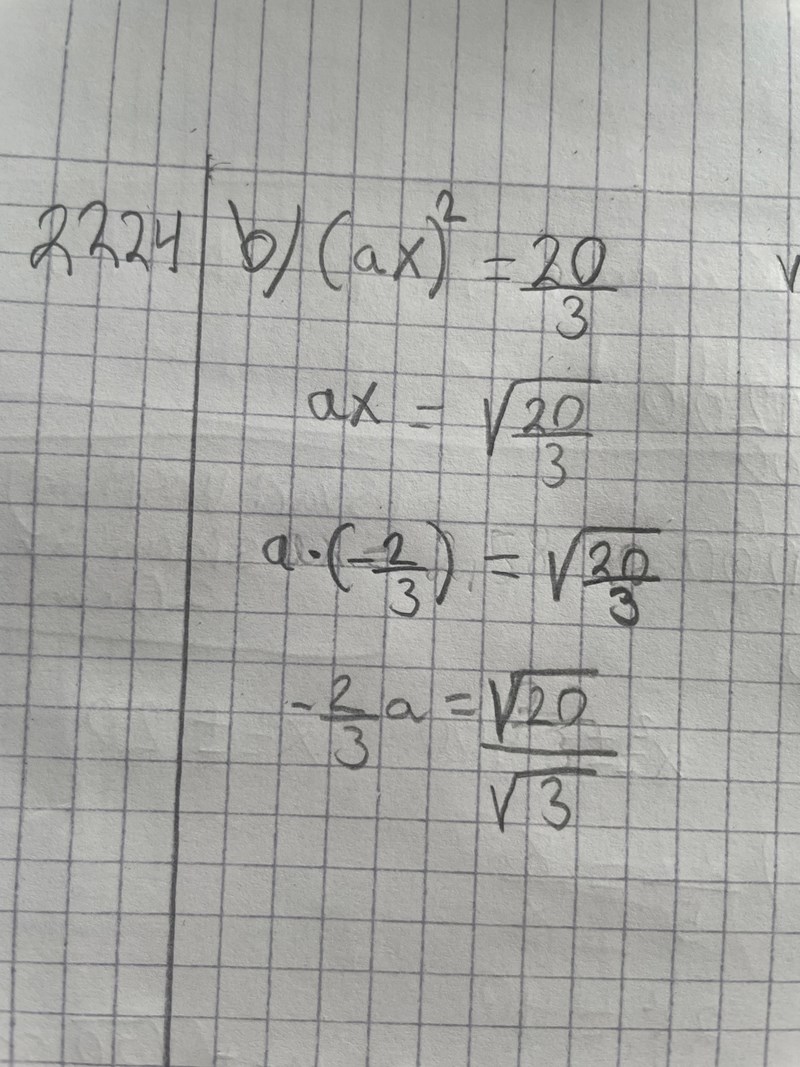 2224 b) (ax)² = 20/3
ax = √(20/3)
a·(-2/3) = √(20/3)
-2/3 a = √20/√3